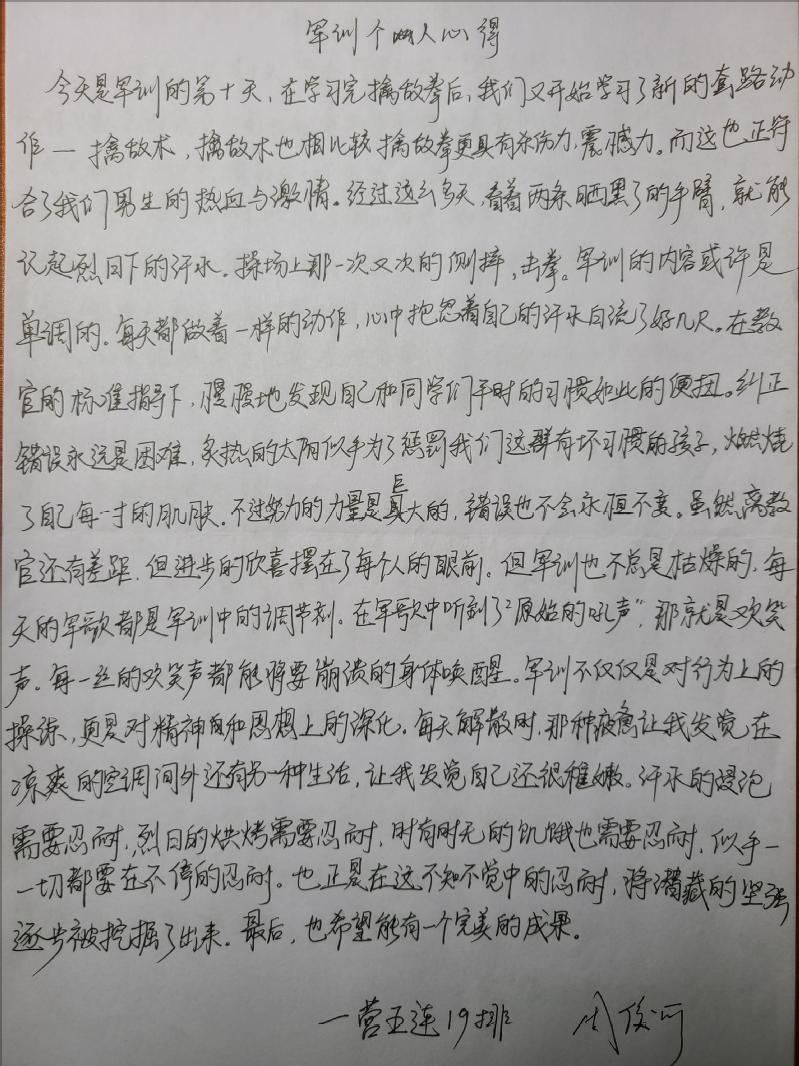 军训个人心得
今天是军训的第十天，在学习完擒敌拳后，我们又开始学习了新的套路动
作一擒敌术，擒敌术也相比较擒敌拳更具有杀伤力，震撼力。而这也正符
合了我们男生的热血与激情。经过这么多天，看着两条晒黑了的手臂，就能
记起烈日下的汗水。操场上那一次又次的侧摔，击拳。军训的内容或许是
单调的。每天都做着一样的动作，心中抱怨着自己的汗水白流了好几尺。在教
官的标准指导下，慢慢地发现自己和同学们平时的习惯如此的便扭。纠正
错误永远是困难，炙热的太阳似乎为了惩罚我们这群有坏习惯的孩子，燃烧
了自己每一寸的肌肤。不过努力的力量是巨大的，错误也不会永恒不变。虽然离教
官还有差距，但进步的欣喜摆在了每个人的眼前。但军训也不总是枯燥的，每
天的军歌都是军训中的调节剂。在军歌中听到了“原始的吼声”，那就是欢笑
声。每一丝的欢笑声都能将要崩溃的身体唤醒。军训不仅仅是对行为上的
操练，更是对精神和思想上的深化。每天解散时，那种疲惫让我发觉在
凉爽的空调间外还有另一种生活，让我发觉自己还很稚嫩。汗水的浸泡
需要忍耐，烈日的烘烤需要忍耐，时有时无的饥饿也需要忍耐，似乎一
一切都要在不停的忍耐。也正是在这不知不觉中的忍耐，将潜藏的坚强
逐步被挖掘了出来。最后，也希望能有一个完美的成果。
一营五连19排 周俊